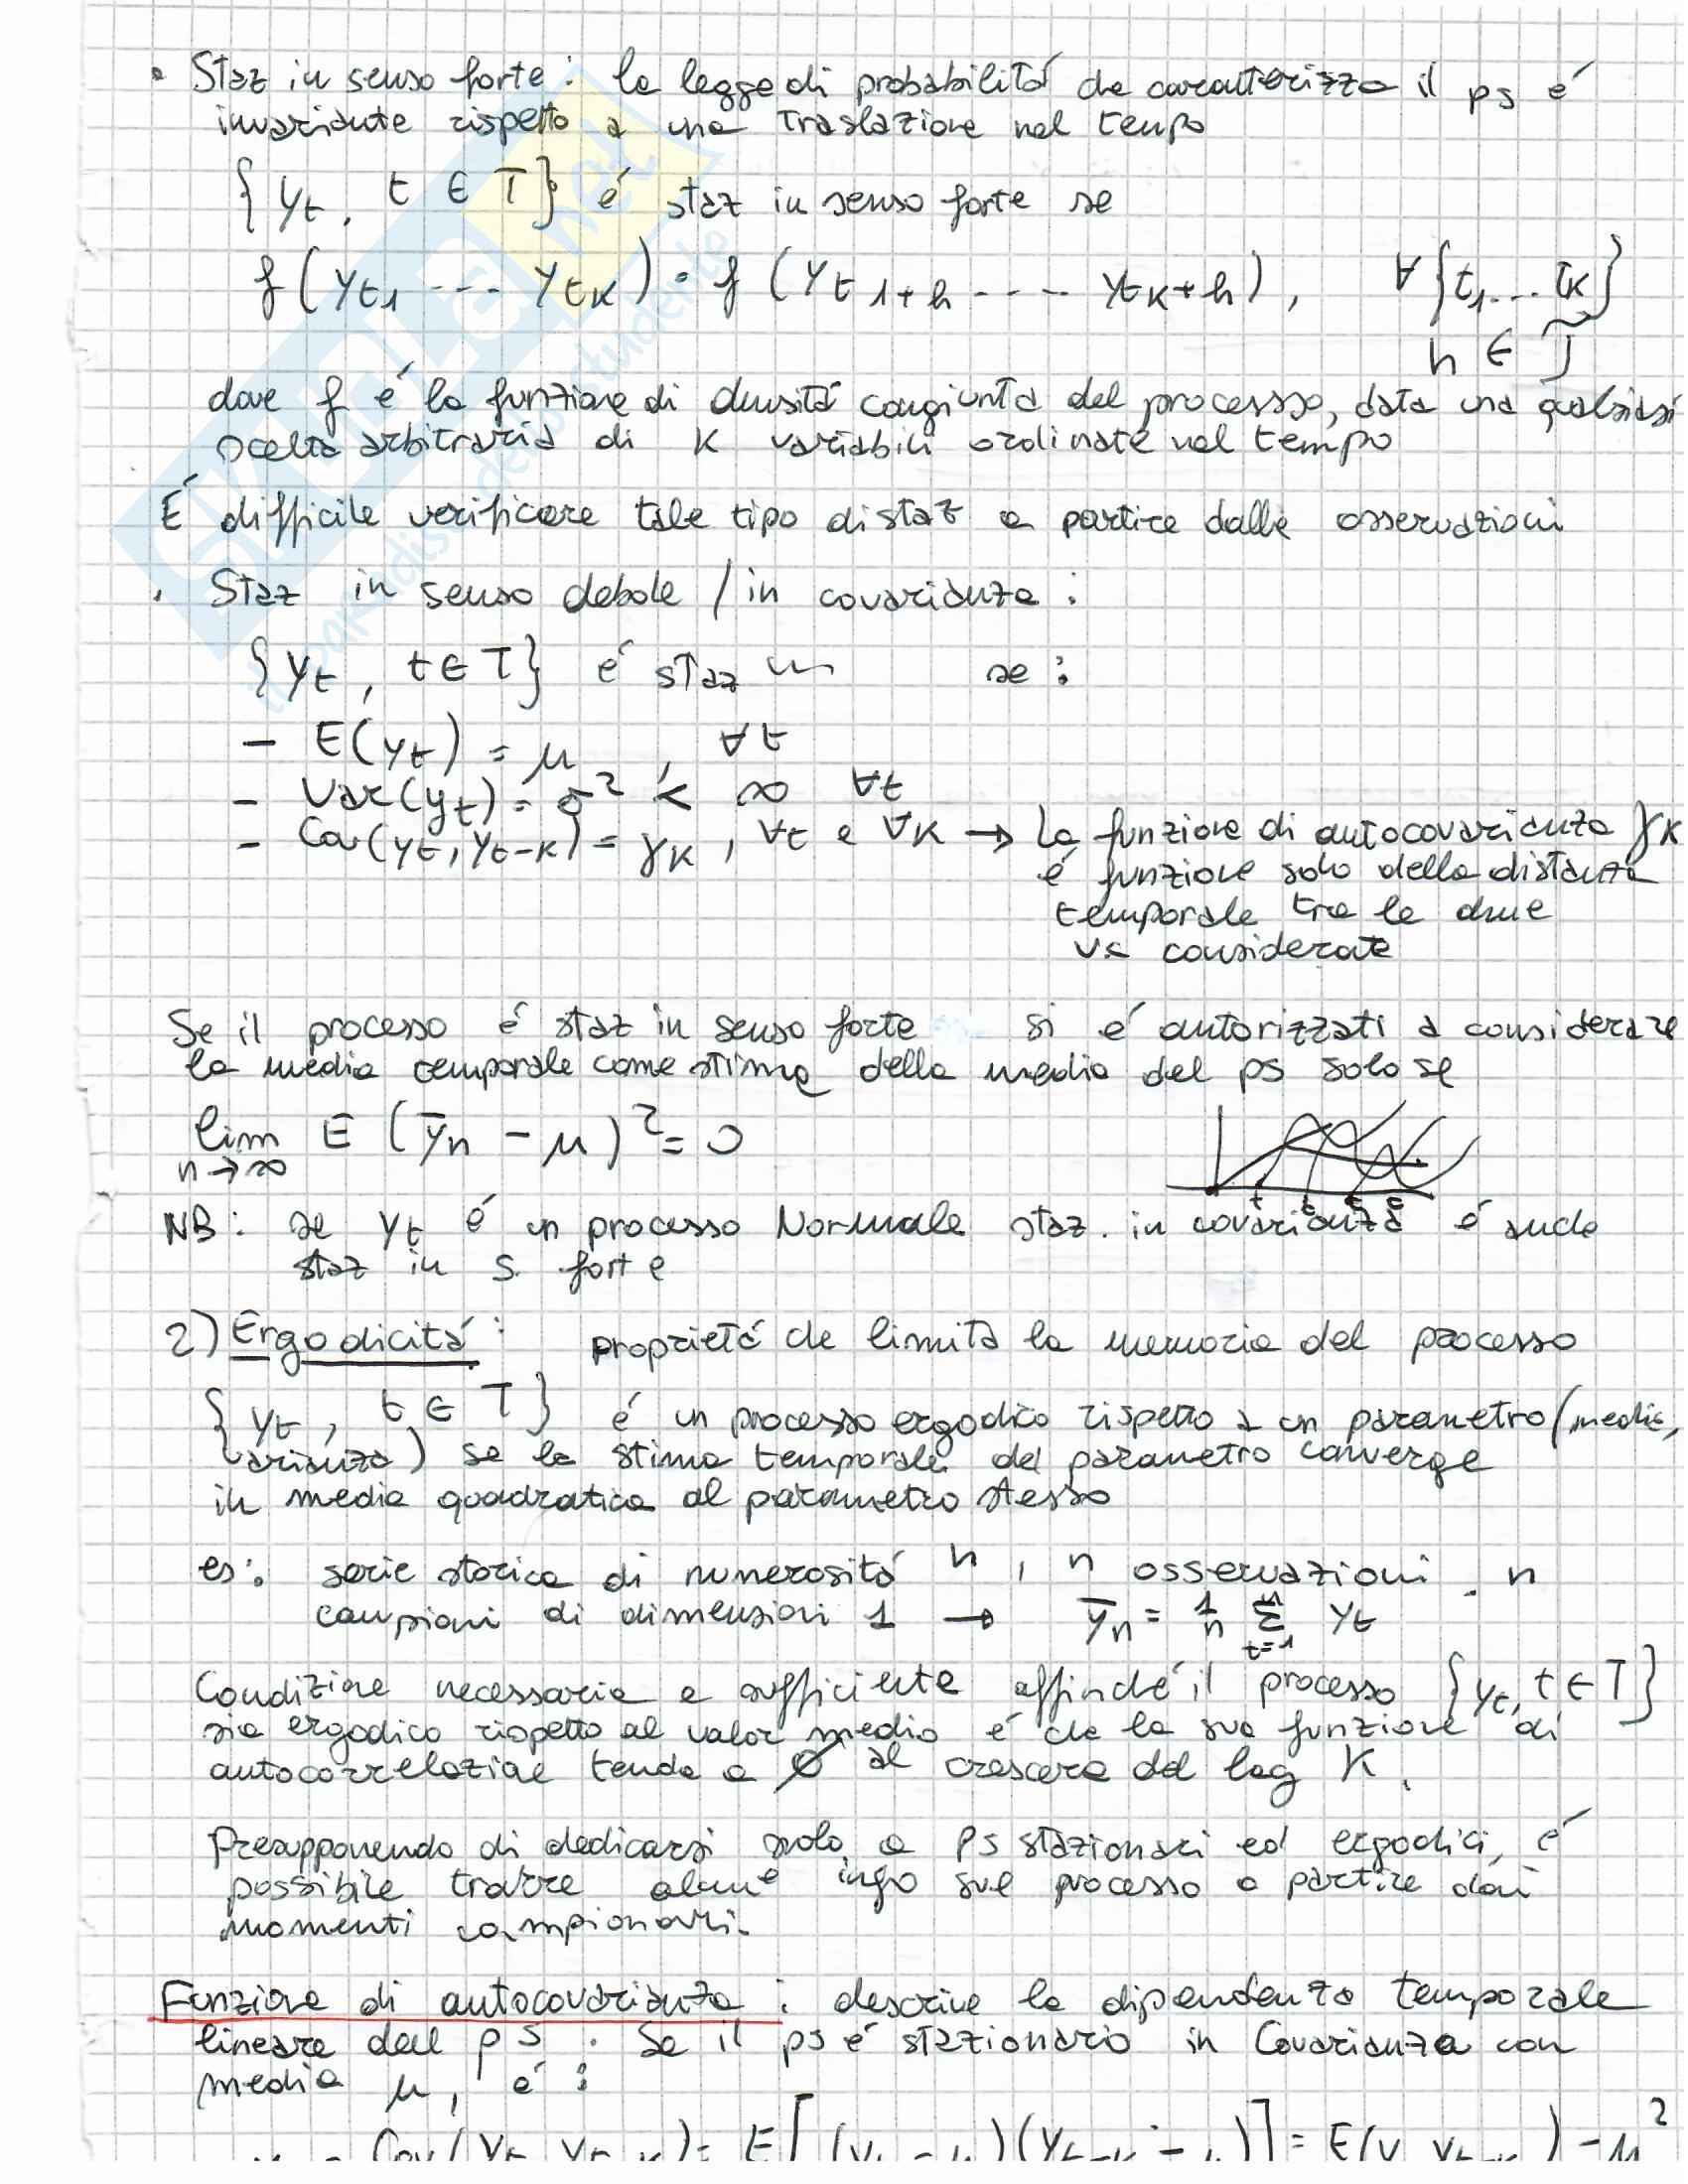 • Staz in senso forte: la legge di probabilità che caratterizza il ps é
invariante rispetto a una traslazione nel tempo
{yt, t ∈ T} é staz in senso forte se
f(yt1 --- ytk) = f(yt1+h ---- ytk+h), ∀{t1....tk}
h ∈ T
dove f é la funzione di densità congiunta del processo, data una qualsiasi
scelta arbitraria di k variabili ordinate nel tempo
É difficile verificare tale tipo di staz a partire dalle osservazioni
• Staz in senso debole / in covarianza:
{yt, t ∈ T} é staz se:
– E(yt) = μ, ∀t
– Var(yt) = σ² < ∞ ∀t
– Cov(yt, yt-k) = γk, ∀t e ∀k → la funzione di autocovarianza γk
é funzione solo della distanza
temporale tra le due
va considerate
Se il processo é staz in senso forte si é autorizzati a considerare
la media temporale come stima della media del ps solo se
lim E (ȳn – μ)² = 0
n→∞
t t t t
NB: se yt é un processo Normale staz. in covarianza é anche
staz in s. forte
2) Ergodicitá: proprietá che limita la memoria del processo
{yt, t ∈ T} é un processo ergodico rispetto a un parametro (media,
varianza) se la stima temporale del parametro converge
in media quadratica al parametro stesso
es: serie storica di numerosità n, n osservazioni. n
campioni di dimensioni 1 → ȳn = 1/n Σ yt
t=1
Condizione necessaria e sufficiente affinché il processo {yt, t ∈ T}
sia ergodico rispetto al valor medio é che la sua funzione di
autocorrelazione tenda a 0 al crescere del lag K.
Presupponendo di dedicarsi solo a ps stazionari ed ergodici, é
possibile trarre alcune info sul processo a partire dai
momenti campionari.
Funzione di autocovarianza: descrive la dipendenza temporale
lineare del ps. Se il ps é stazionario in Covarianza con
media μ, é: